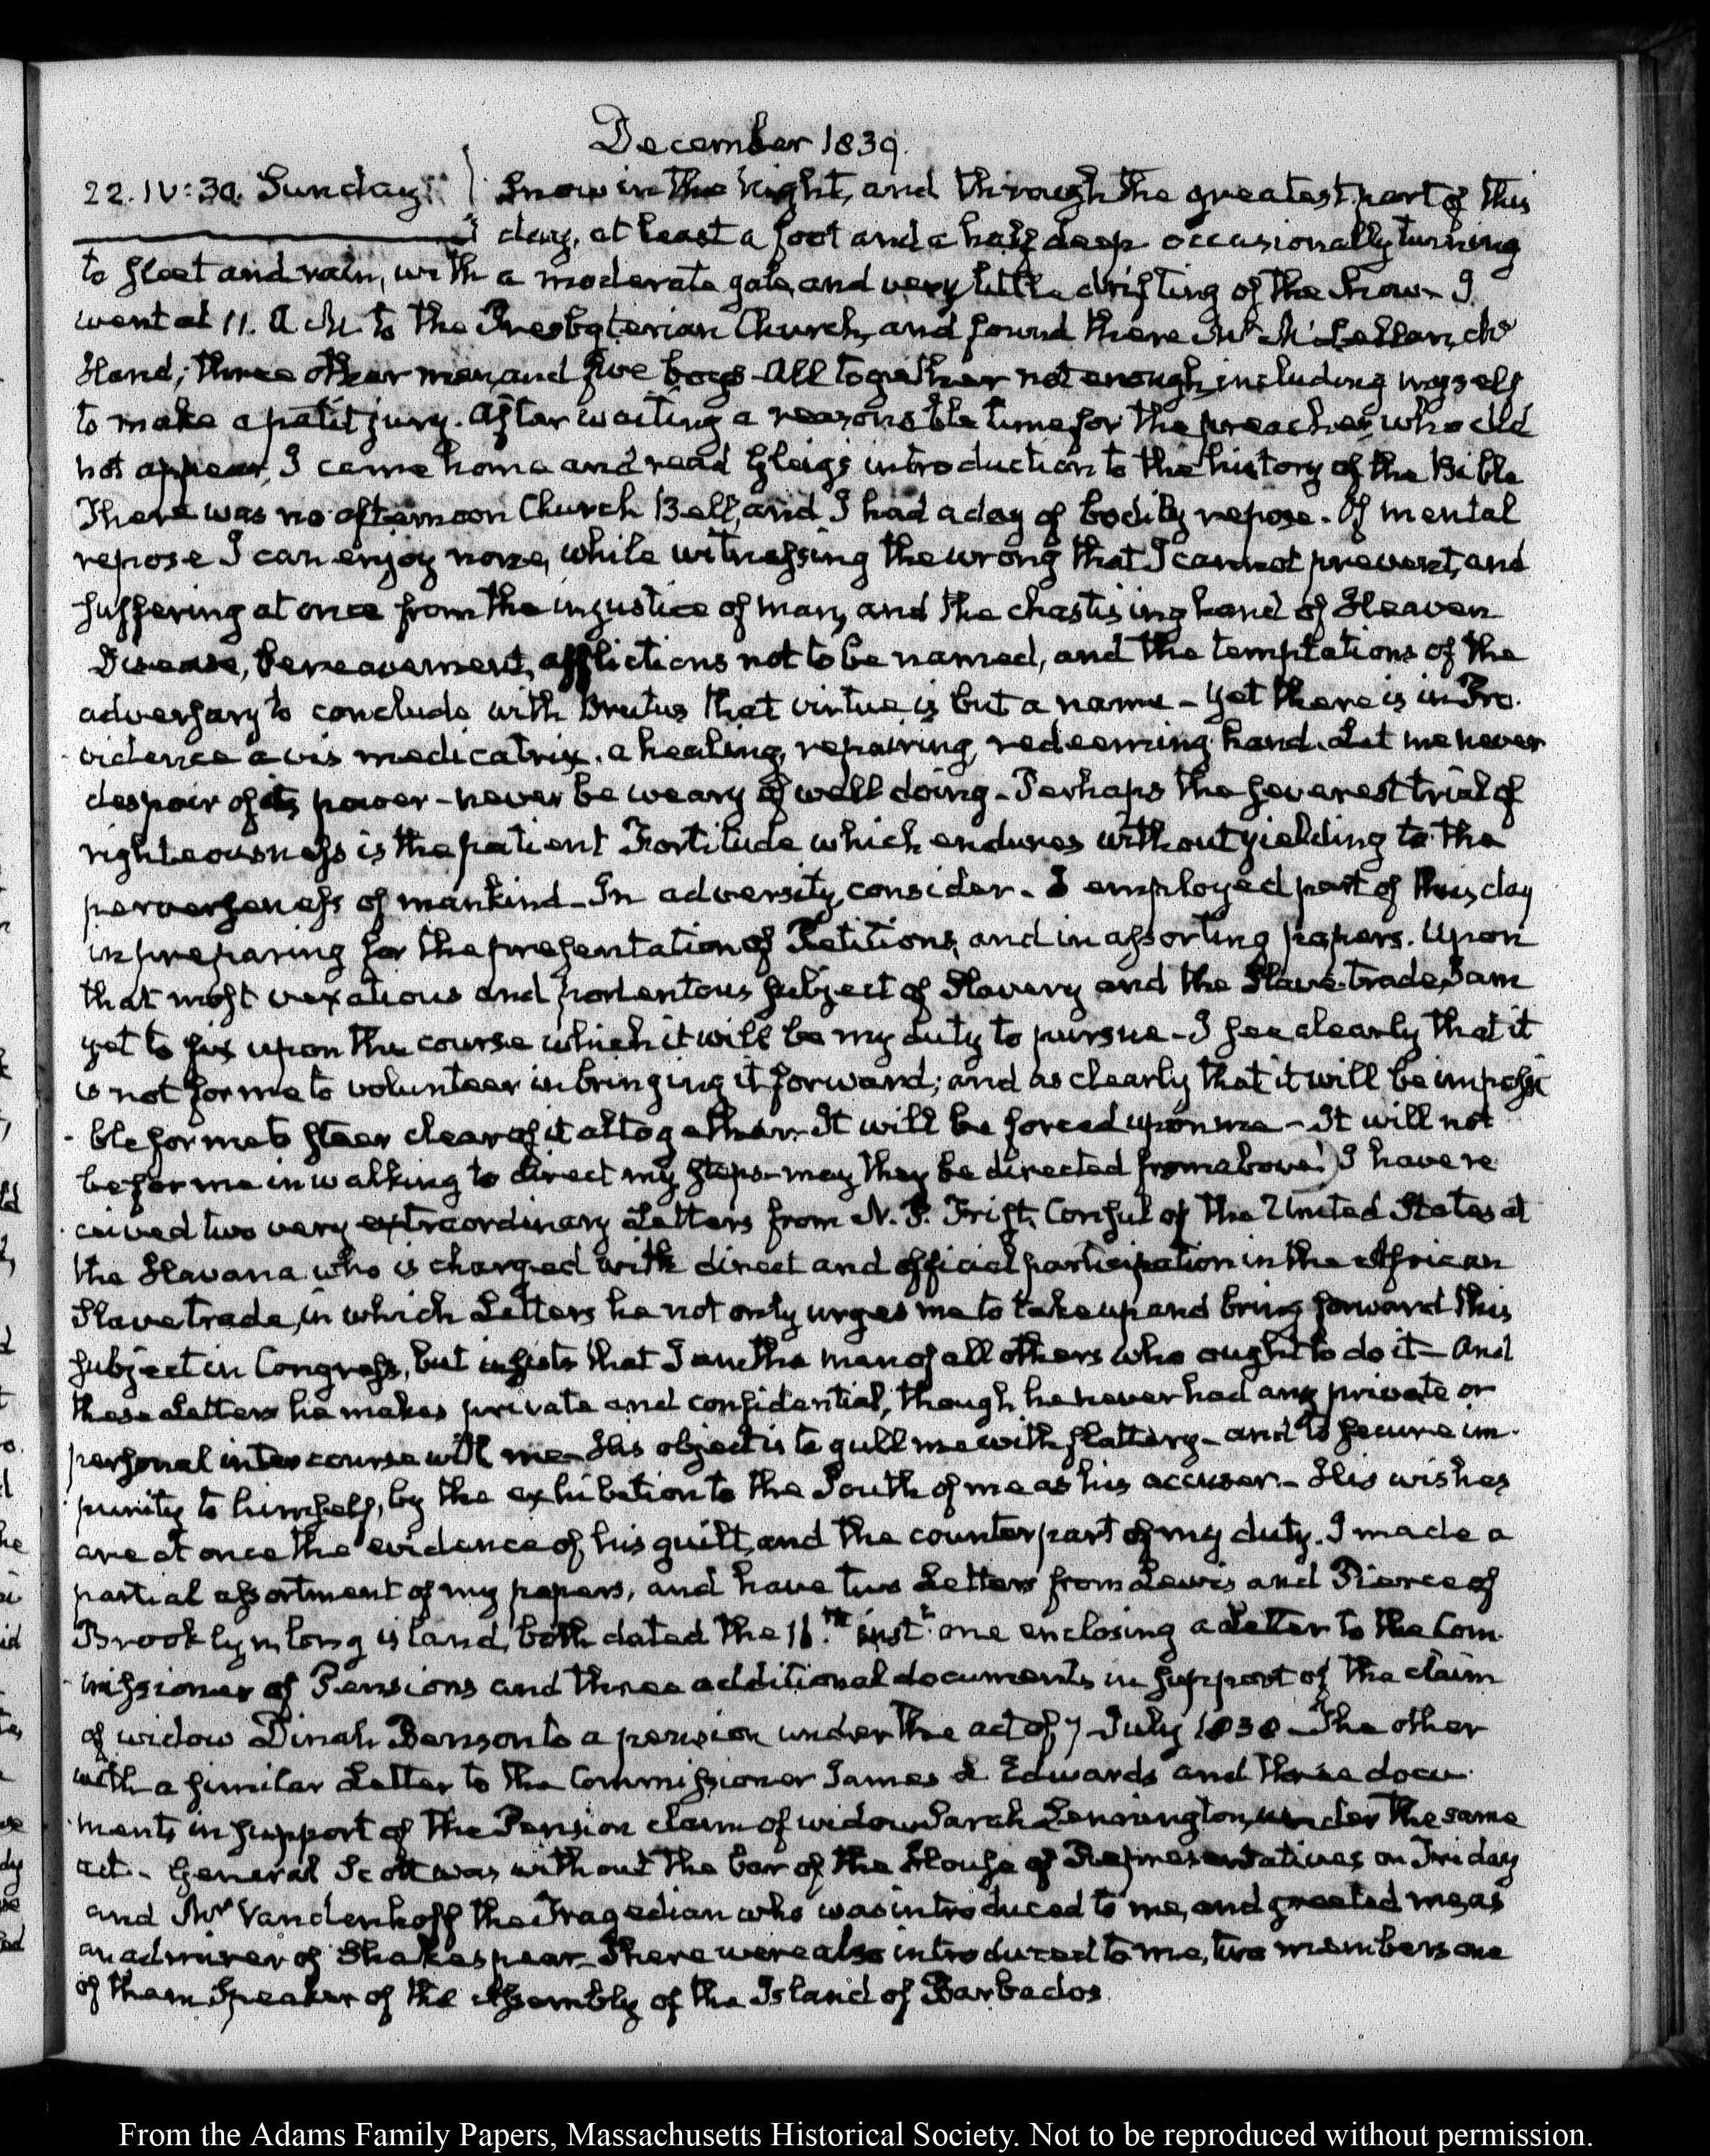 December 1839.
22. IV:30. Sunday. Snow in the Night, and through the greatest part of this
day, at least a foot and a half deep occasionally turning
to sleet and rain, with a moderate gale, and very little drifting of the Snow - I
went at 11. A.M. to the Presbyterian Church, and found there Mr McLellan, Mr
Hand; three other men, and five boys - All together not enough, including myself
to make a petit jury. After waiting a reasonable time for the preacher, who did
not appear, I came home and read Gleig's introduction to the history of the Bible
There was no afternoon Church Bell, and I had a day of bodily repose. Of mental
repose I can enjoy none, while witnessing the wrong that I cannot prevent, and
suffering at once from the injustice of man, and the chastising hand of Heaven
Disease, bereavement, afflictions not to be named, and the temptations of the
adversary to conclude with Brutus that virtue is but a name - Yet there is in Pro-
vidence a vis medicatrix. a healing, repairing, redeeming hand. Let me never
despair of its power - never be weary of well doing - Perhaps the severest trial of
righteousness is the patient Fortitude which endures without yielding to the
perverseness of mankind - In adversity, consider - I employed part of this day
in preparing for the presentation of Petitions, and in assorting papers. Upon
that most vexatious and portentous subject of Slavery and the Slave-trade, I am
yet to fix upon the course which it will be my duty to pursue - I see clearly that it
is not for me to volunteer in bringing it forward; and as clearly that it will be impossi
ble for me to steer clear of it altogether - It will be forced upon me - It will not
be for me in walking to direct my steps - may they be directed from above! I have re-
ceived two very extraordinary Letters from N. P. Trist, Consul of the United States at
the Havana who is charged with direct and official participation in the African
Slave trade, in which Letters he not only urges me to take up and bring forward this
subject in Congress, but insists that I am the man of all others who ought to do it - And
these Letters he makes private and confidential, though he never had any private or
personal intercourse with me - His object is to gull me with flattery - and to secure im-
punity to himself, by the exhibition to the South of me as his accuser - His wishes
are at once the evidence of his guilt, and the counterpart of my duty. I made a
partial assortment of my papers, and have two Letters from Lewis and Pierce of
Brooklyn, long island, both dated the 16.th inst.t one enclosing a Letter to the Com-
missioner of Pensions and three additional documents in support of the claim
of widow Dinah Benson to a pension under the act of 7 July 1838 - The other
with a similar Letter to the Commissioner James L Edwards and three docu-
ments in support of the Pension claim of widow Sarah under the same
act - General Scott was without the bar of the House of Representatives on Friday
and Mr Vandenhoff the Tragedian who was introduced to me, and greeted me, as
an admirer of Shakespear - There were also introduced to me, two members one
of them Speaker of the Assembly of the Island of Barbados
From the Adams Family Papers, Massachusetts Historical Society. Not to be reproduced without permission.